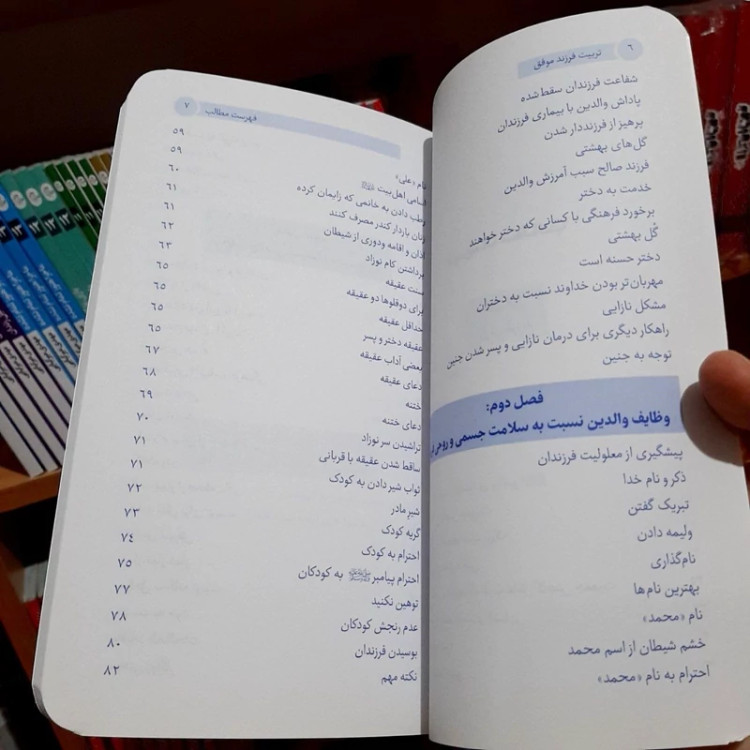 ۶ تربیت فرزند موفق
شفاعت فرزندان سقط‌شده
پاداش والدین با بیماری فرزندان
پرهیز از فرزنددار شدن
گل‌های بهشتی
فرزند صالح سبب آمرزش والدین
خدمت به دختر
برخورد فرهنگی با کسانی که دختر خواهند
گُل بهشتی
دختر حسنه است
مهربان‌تر بودن خداوند نسبت به دختران
مشکل نازایی
راهکار دیگری برای درمان نازایی و پسر شدن جنین
توجه به جنین
فصل دوم:
وظایف والدین نسبت به سلامت جسمی و روحی
پیشگیری از معلولیت فرزندان
ذکر و نام خدا
تبریک گفتن
ولیمه دادن
نام‌گذاری
بهترین نام‌ها
نام «محمد»
خشم شیطان از اسم محمد
احترام به نام «محمد»
فهرست مطالب ۷
نام «علی» ۵۹
اسامی اهل‌بیت ۵۹
رطب دادن به خانمی که زایمان کرده ۶۰
زنان باردار کندر مصرف کنند ۶۱
اذان و اقامه ودوری از شیطان ۶۱
برداشتن کام نوزاد ۶۲
سنت عقیقه ۶۳
برای دوقلوها دو عقیقه ۶۵
حداقل عقیقه ۶۵
عقیقه دختر و پسر ۶۵
بعضی آداب عقیقه ۶۵
دعای عقیقه ۶۷
ختنه ۶۸
دعای ختنه ۶۹
تراشیدن سر نوزاد ۷۰
ساقط شدن عقیقه با قربانی ۷۱
ثواب شیر دادن به کودک ۷۱
شیر مادر ۷۲
گریه کودک ۷۳
احترام به کودک ۷۴
احترام پیامبر ﷺ به کودکان ۷۵
توهین نکنید ۷۷
عدم رنجش کودکان ۷۸
بوسیدن فرزندان ۸۰
نکته مهم ۸۲